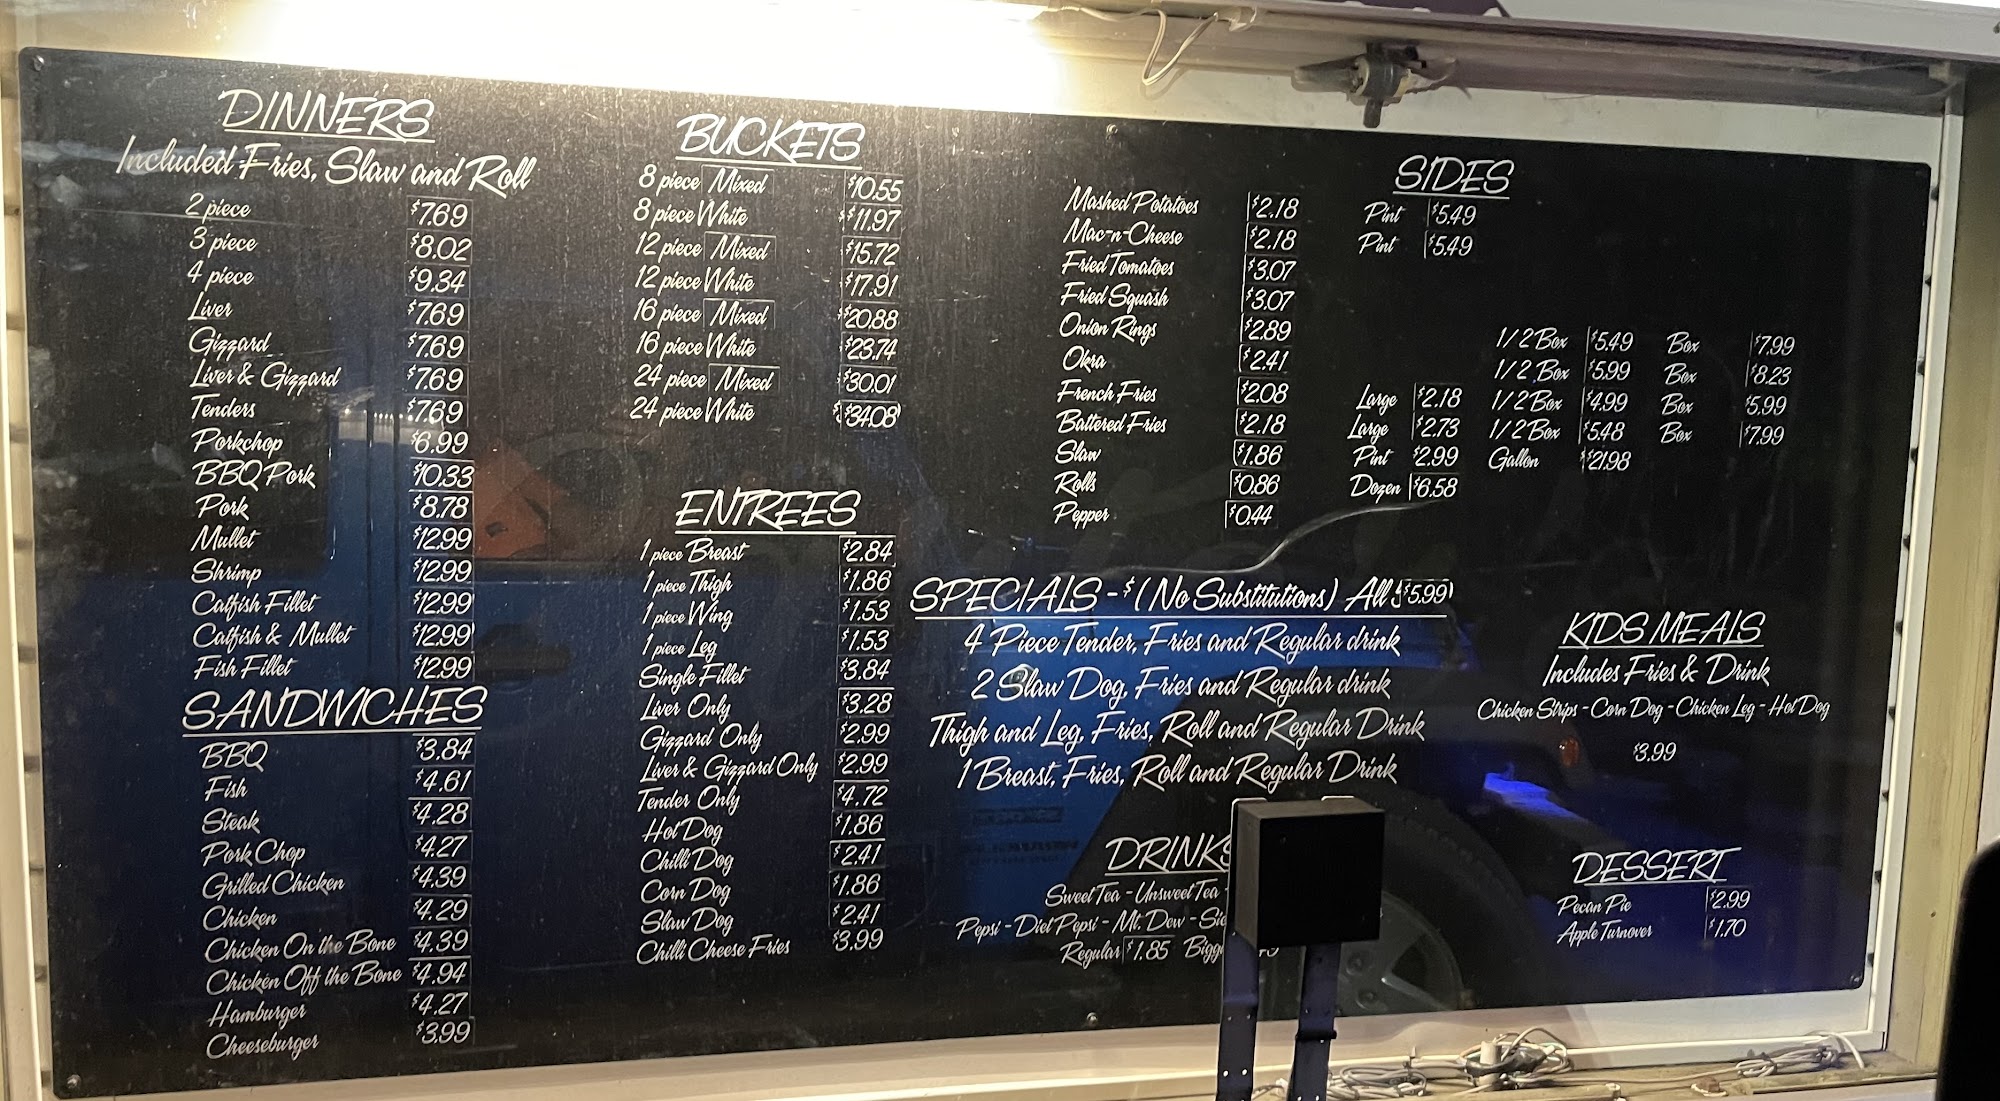 DINNERS
Included Fries, Slaw and Roll
2 piece $7.69
3 piece $8.02
4 piece $9.34
Liver $7.69
Gizzard $7.69
Liver & Gizzard $7.69
Tenders $7.69
Porkchop $6.99
BBQ Pork $10.33
Pork $8.78
Mullet $12.99
Shrimp $12.99
Catfish Fillet $12.99
Catfish & Mullet $12.99
Fish Fillet $12.99
SANDWICHES
BBQ $3.84
Fish $4.61
Steak $4.28
Pork Chop $4.27
Grilled Chicken $4.39
Chicken $4.29
Chicken On the Bone $4.39
Chicken Off the Bone $4.94
Hamburger $4.27
Cheeseburger $3.99
BUCKETS
8 piece Mixed $10.55
8 piece White $11.97
12 piece Mixed $15.72
12 piece White $17.91
16 piece Mixed $20.88
16 piece White $23.74
24 piece Mixed $30.01
24 piece White $34.08
ENTREES
1 piece Breast $2.84
1 piece Thigh $1.86
1 piece Wing $1.53
1 piece Leg $1.53
Single Fillet $3.84
Liver Only $3.28
Gizzard Only $2.99
Liver & Gizzard Only $2.99
Tender Only $4.72
Hot Dog $1.86
Chilli Dog $2.41
Corn Dog $1.86
Slaw Dog $2.41
Chilli Cheese Fries $3.99
SIDES
Mashed Potatoes $2.18 Pint $5.49
Mac-n-Cheese $2.18 Pint $5.49
Fried Tomatoes $3.07
Fried Squash $3.07
Onion Rings $2.89 1/2 Box $5.49 Box $7.99
Okra $2.41 1/2 Box $5.99 Box $8.23
French Fries $2.08 Large $2.18 1/2 Box $4.99 Box $5.99
Battered Fries $2.18 Large $2.73 1/2 Box $5.48 Box $7.99
Slaw $1.86 Pint $2.99 Gallon $21.98
Rolls $0.86 Dozen $6.58
Pepper $0.44
SPECIALS - $ (No Substitutions) All $5.99
4 Piece Tender, Fries and Regular drink
2 Slaw Dog, Fries and Regular drink
Thigh and Leg, Fries, Roll and Regular Drink
1 Breast, Fries, Roll and Regular Drink
DRINKS
Sweet Tea - Unsweet Tea -
Pepsi - Diet Pepsi - Mt. Dew -
Regular $1.85
KIDS MEALS
Includes Fries & Drink
Chicken Strips - Corn Dog - Chicken Leg - Hot Dog
$3.99
DESSERT
Pecan Pie $2.99
Apple Turnover $1.70